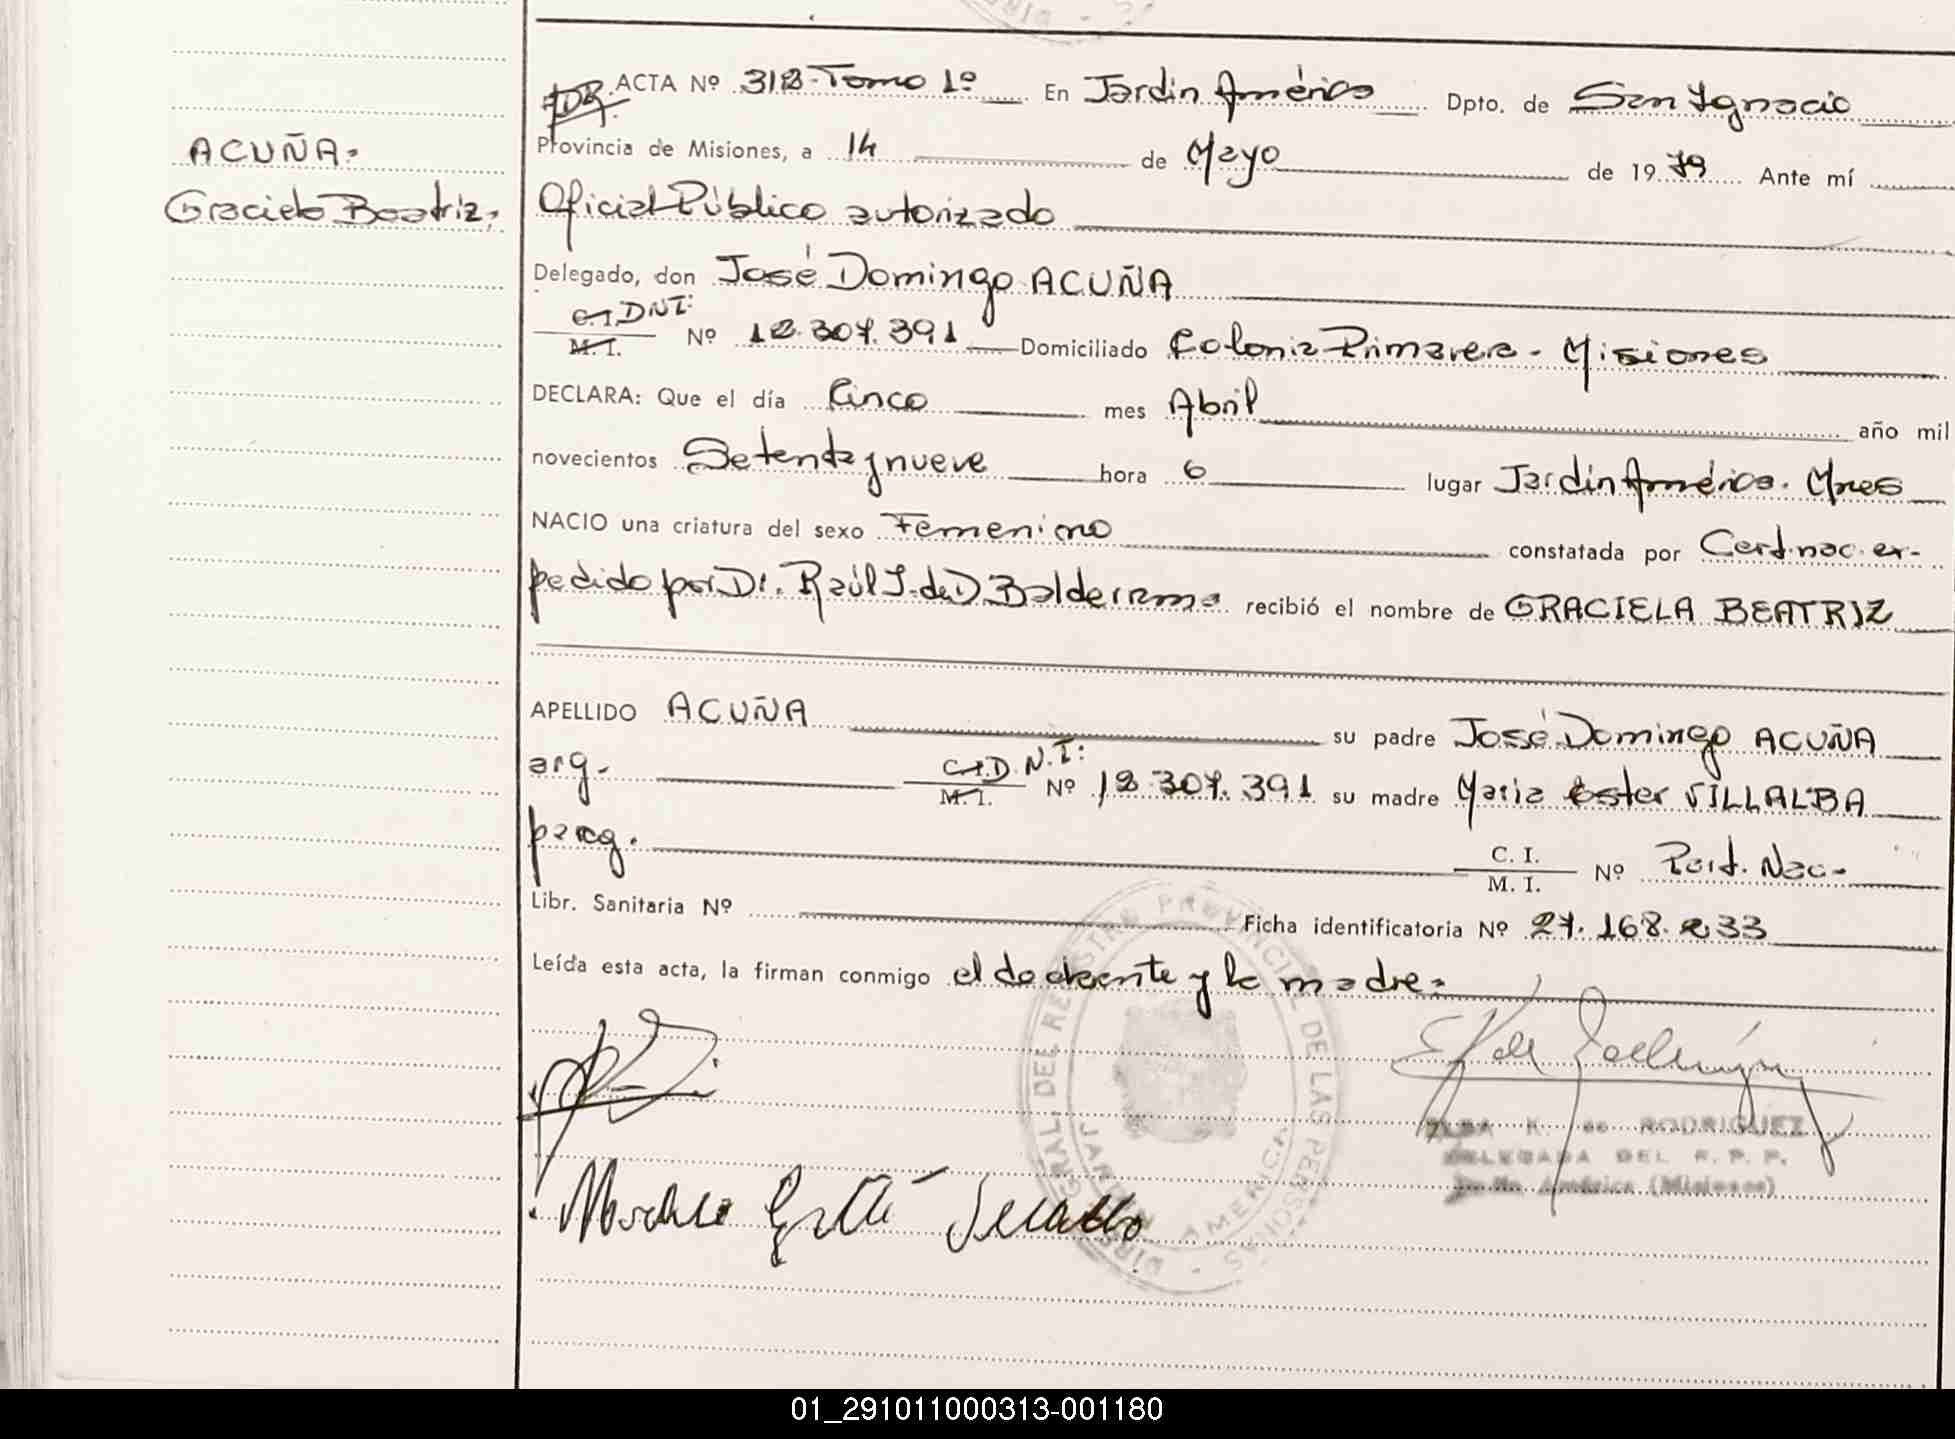 ACTA Nº 318-Tomo 1º En Jardin América Dpto. de San Ignacio
Provincia de Misiones, a 14 de Mayo de 1979 Ante mí
ACUÑA=
Graciela Beatriz,
Oficial Público autorizado
Delegado, don José Domingo ACUÑA
C.I. DNI:
M. I. Nº 12.307.391 Domiciliado Colonia Primavera - Misiones
DECLARA: Que el día Cinco mes Abril año mil
novecientos Setenta y nueve hora 6 lugar Jardin América. Mnes
NACIO una criatura del sexo Femenino constatada por Cert. nac. ex-
pedido por Dr. Raúl J. de D. Balderrama recibió el nombre de GRACIELA BEATRIZ
APELLIDO ACUÑA su padre José Domingo ACUÑA
arg. C.I. D.N.I:
M. I. Nº 12.307.391 su madre Maria Ester VILLALBA
parag. C. I.
M. I. Nº Part. Nac-
Libr. Sanitaria Nº Ficha identificatoria Nº 27.168.233
Leída esta acta, la firman conmigo el declarante y la madre=
DIRECCION GRAL. DEL REGISTRO PROVINCIAL DE LAS PERSONAS
JARDIN AMERICA
ELBA K. de RODRIGUEZ
DELEGADA DEL R. P. P.
Jardin América (Misiones)
01_291011000313-001180